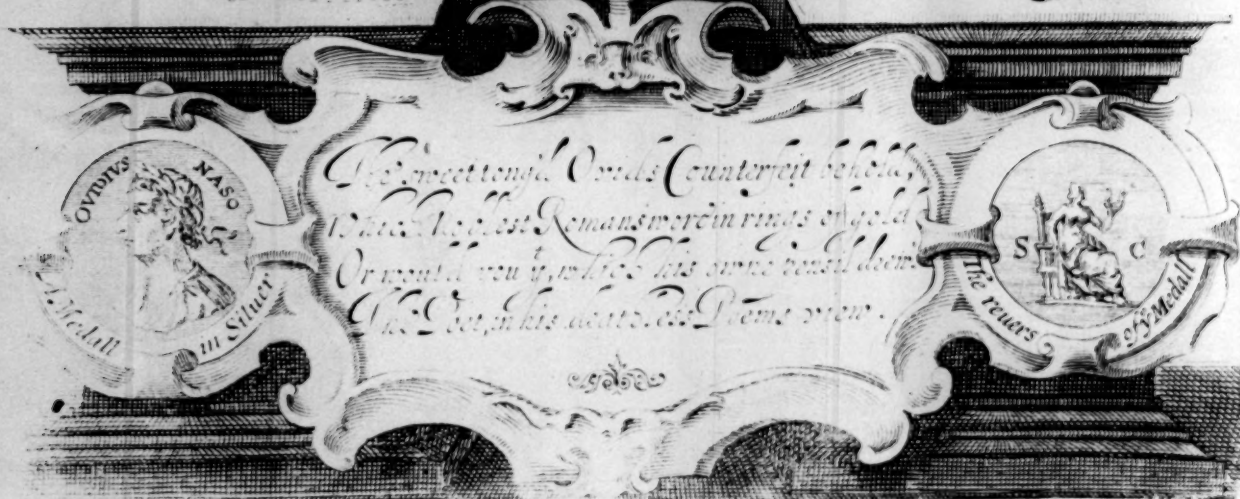 OVIDIVS NASO
A Medall in Siluer
The sweet tong'd Ovids Counterfeit behold,
Which Noblest Romans wore in rings of gold
Or would you yt, which his owne pensil drew
The Poet, in his deathless Poems view.
S C
The reuers of ye Medall